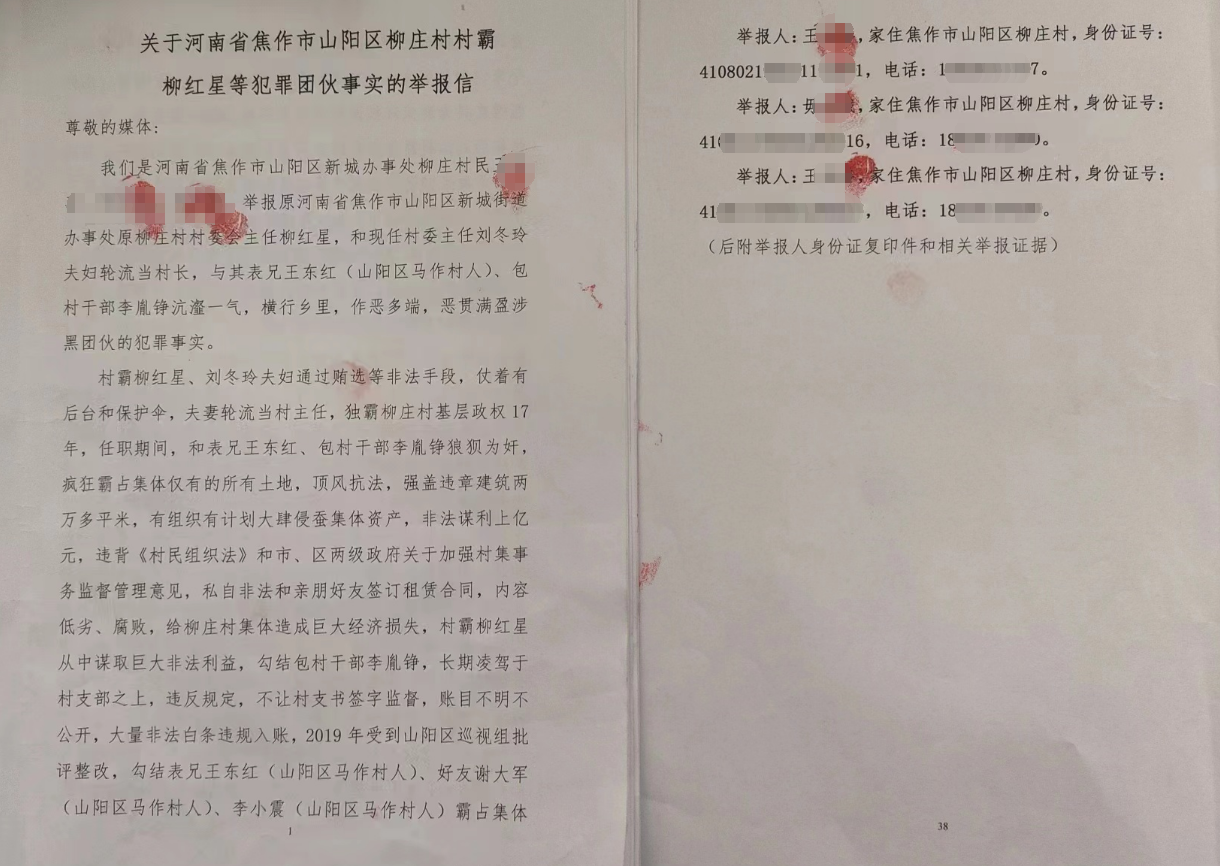 关于河南省焦作市山阳区柳庄村村霸
柳红星等犯罪团伙事实的举报信
尊敬的媒体:
我们是河南省焦作市山阳区新城办事处柳庄村民王
举报原河南省焦作市山阳区新城街道
办事处原柳庄村村委会主任柳红星，和现任村委主任刘冬玲
夫妇轮流当村长，与其表兄王东红（山阳区马作村人）、包
村干部李胤铮沆瀣一气，横行乡里，作恶多端，恶贯满盈涉
黑团伙的犯罪事实。
村霸柳红星、刘冬玲夫妇通过贿选等非法手段，仗着有
后台和保护伞，夫妻轮流当村主任，独霸柳庄村基层政权 17
年，任职期间，和表兄王东红、包村干部李胤铮狼狈为奸，
疯狂霸占集体仅有的所有土地，顶风抗法，强盖违章建筑两
万多平米，有组织有计划大肆侵蚕集体资产，非法谋利上亿
元，违背《村民组织法》和市、区两级政府关于加强村集事
务监督管理意见，私自非法和亲朋好友签订租赁合同，内容
低劣、腐败，给柳庄村集体造成巨大经济损失，村霸柳红星
从中谋取巨大非法利益，勾结包村干部李胤铮，长期凌驾于
村支部之上，违反规定，不让村支书签字监督，账目不明不
公开，大量非法白条违规入账，2019 年受到山阳区巡视组批
评整改，勾结表兄王东红（山阳区马作村人）、好友谢大军
（山阳区马作村人）、李小震（山阳区马作村人）霸占集体
1
举报人：王，家住焦作市山阳区柳庄村，身份证号：
4108021 11 1，电话：1 7。
举报人：毋，家住焦作市山阳区柳庄村，身份证号：
41 16，电话：18 。
举报人：王 家住焦作市山阳区柳庄村，身份证号：
41 ，电话：18 。
（后附举报人身份证复印件和相关举报证据）
38